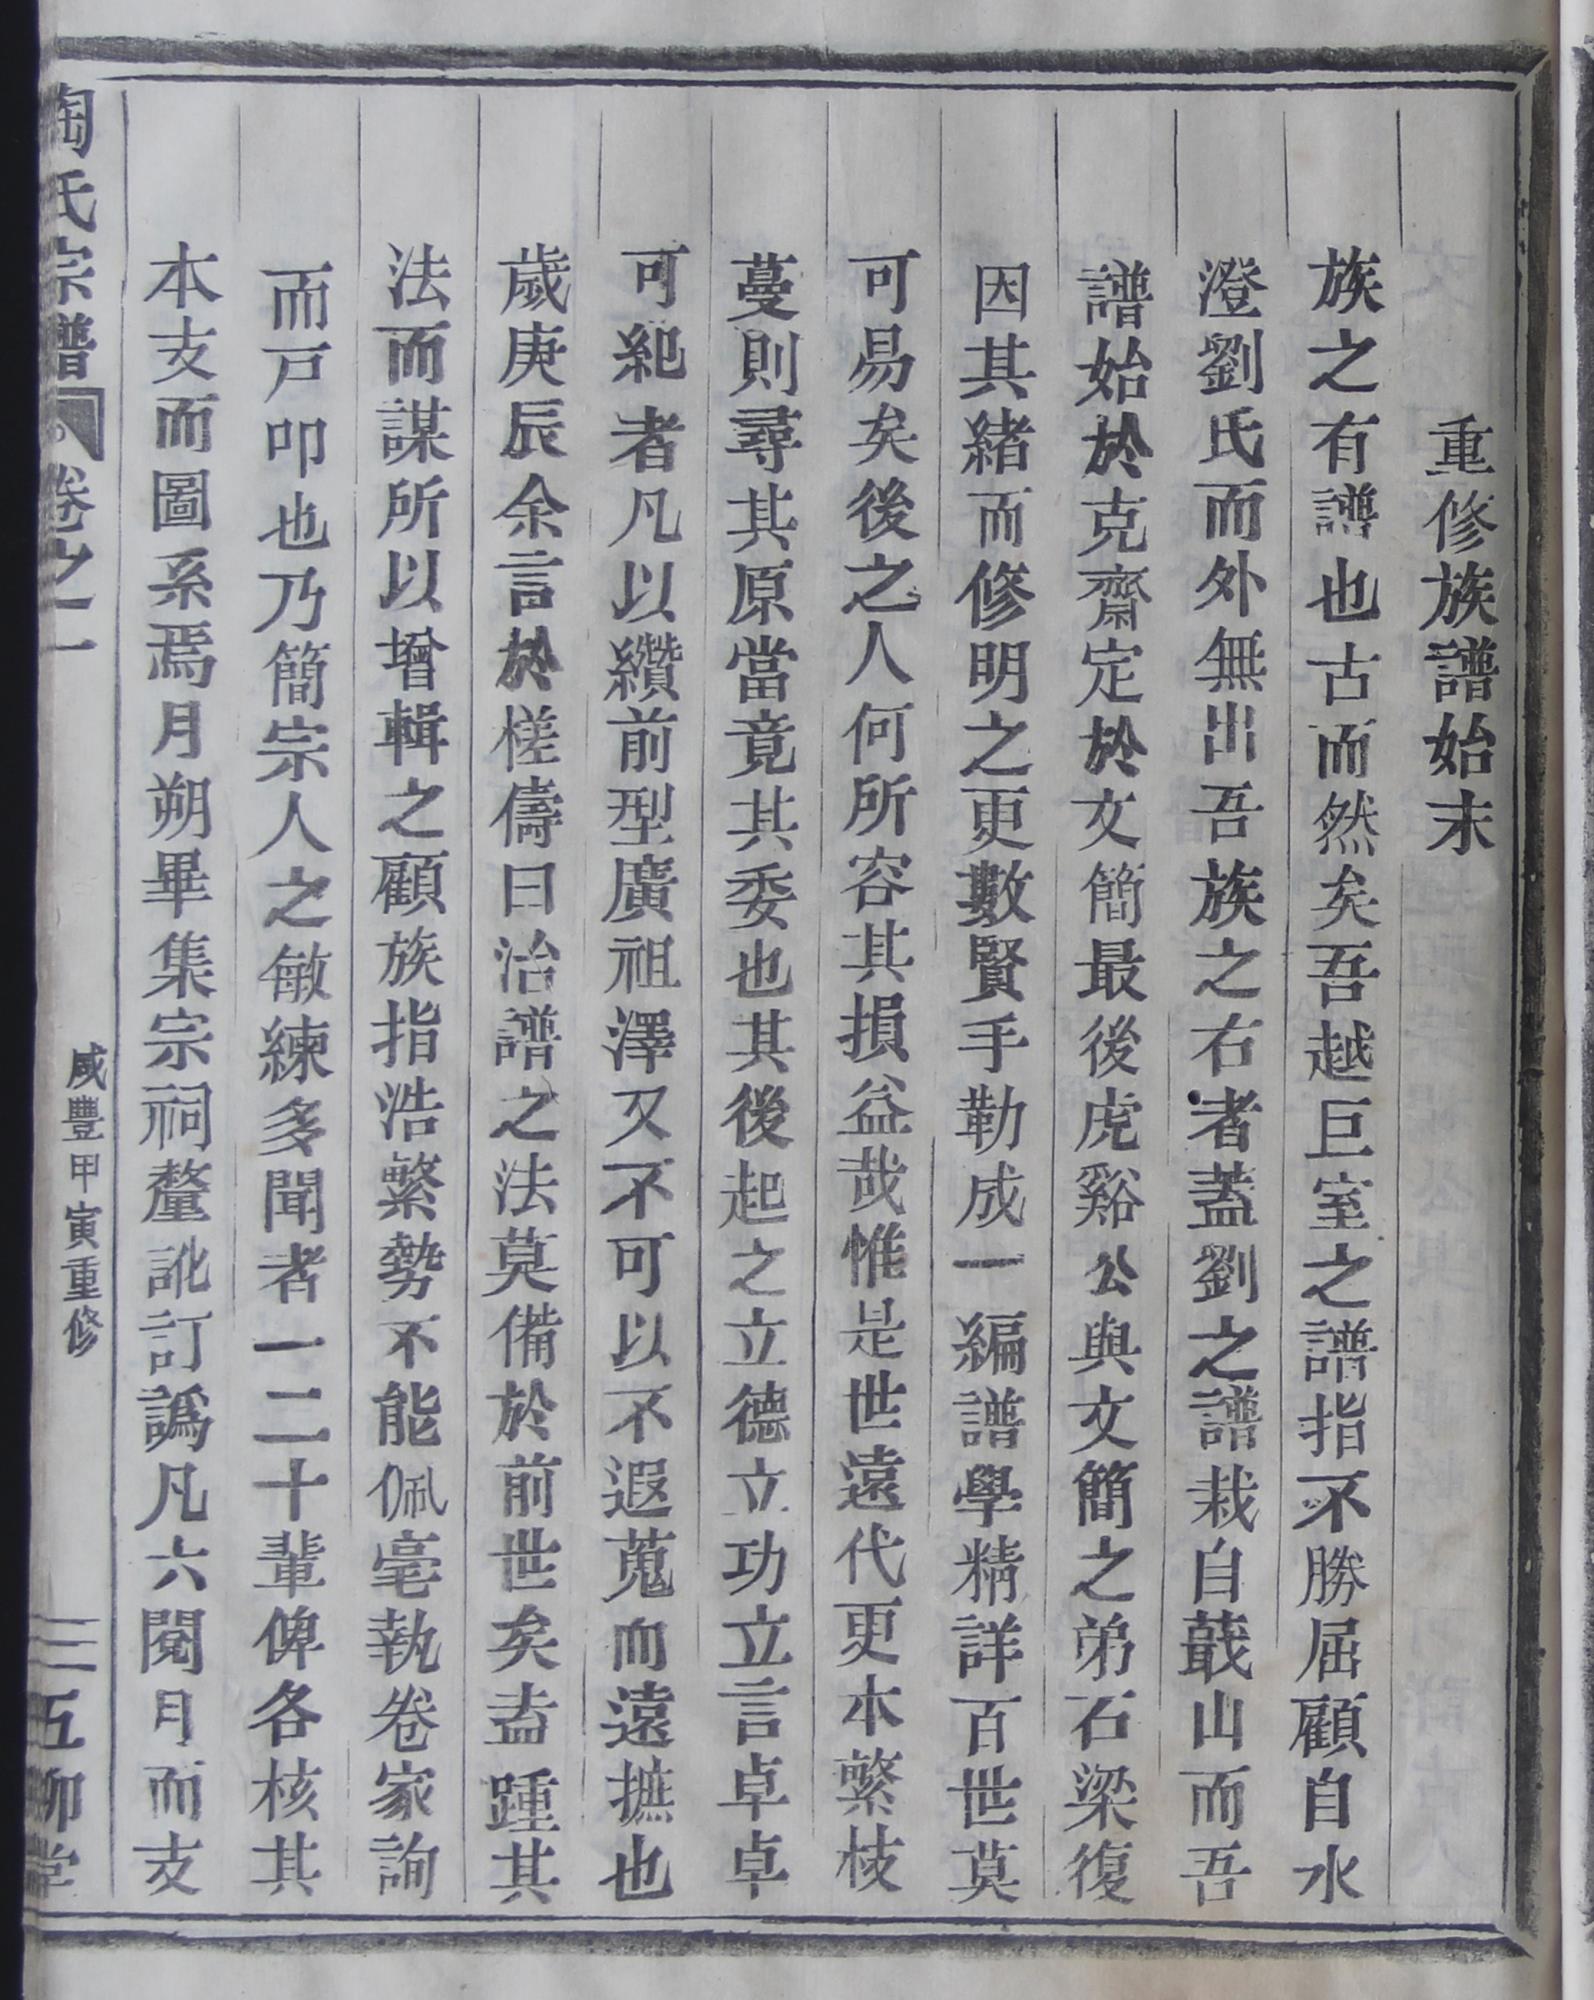 重修族譜始末
族之有譜也古而然矣吾越巨室之譜指不勝屈顧自水
澄劉氏而外無出吾族之右者蓋劉之譜栽自蕺山而吾
譜始於克齋定於文簡最後虎谿公與文簡之弟石梁復
因其緒而修明之更數賢手勒成一編譜學精詳百世莫
可易矣後之人何所容其損益哉惟是世遠代更本繁枝
蔓則尋其原當竟其委也其後起之立德立功立言卓卓
可紀者凡以纘前型廣祖澤又不可以不遐蒐而遠摭也
歲庚辰余言於槎儔曰治譜之法莫備於前世矣盍踵其
法而謀所以增輯之顧族指浩繁勢不能佩毫執卷家詢
而戸叩也乃簡宗人之敏練多聞者一二十輩俾各核其
本支而圖系焉月朔畢集宗祠釐訛訂譌凡六閱月而支
陶氏宗譜 卷之一 咸豐甲寅重修 三 五柳堂